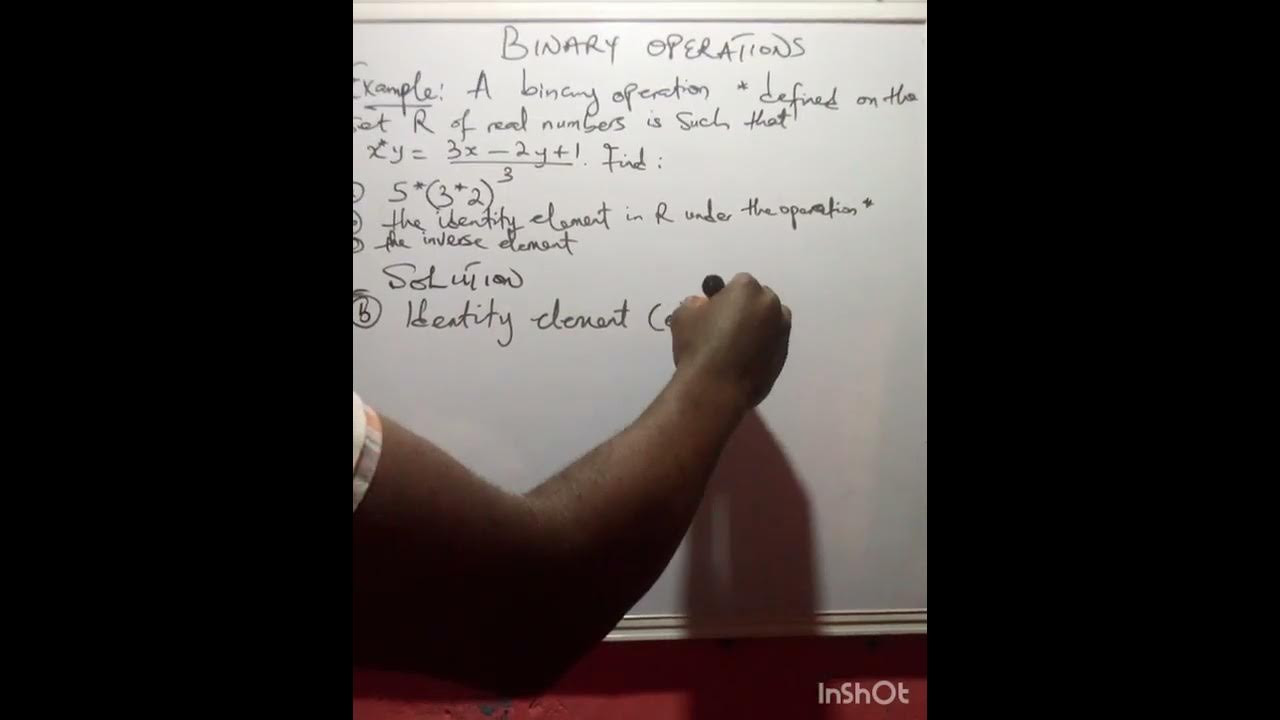 BINARY OPERATIONS
Example: A binary operation * defined on the
Set R of real numbers is such that
x*y = 3x - 2y + 1. Find:
3
5*(3*2)
the identity element in R under the operation*
the inverse element
SOLUTION
(B) Identity element (e
InShOt